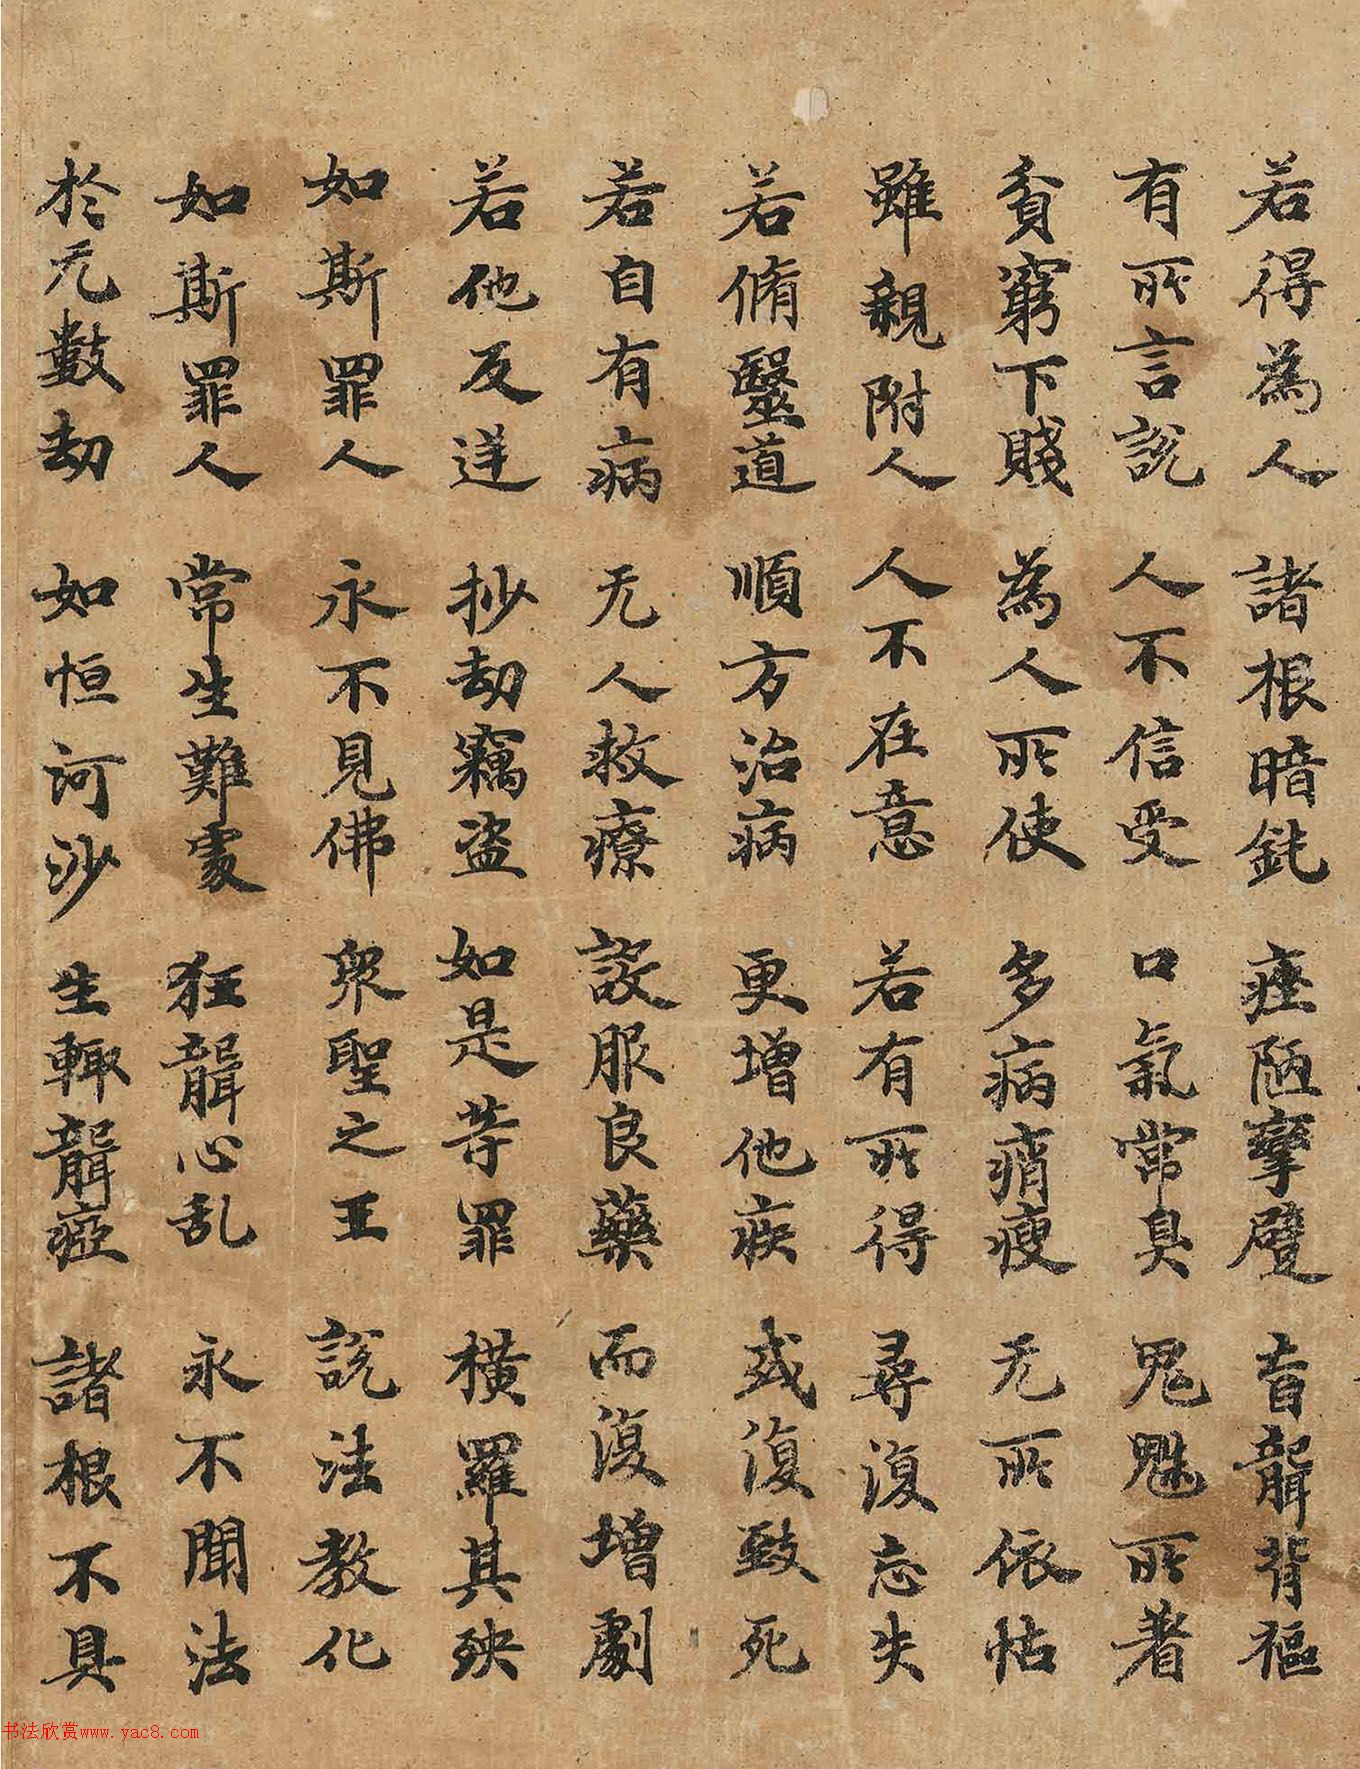 若得為人 諸根暗鈍 痤陋攣躄 盲聾背傴
有所言說 人不信受 口氣常臭 鬼魅所著
貧窮下賤 為人所使 多病痟瘦 无所依怙
雖親附人 人不在意 若有所得 尋復忘失
若脩毉道 順方治病 更增他疾 或復致死
若自有病 无人救療 設服良藥 而復增劇
若他反逆 抄劫竊盜 如是等罪 橫羅其殃
如斯罪人 永不見佛 眾聖之王 說法教化
如斯罪人 常生難處 狂聾心乱 永不聞法
於无數劫 如恒河沙 生輒聾瘂 諸根不具
书法欣赏www.yac8.com